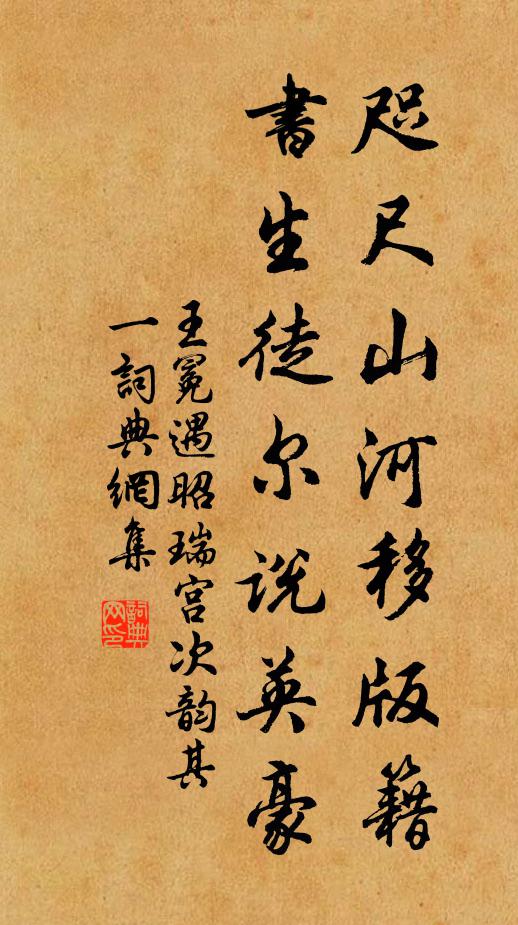 咫尺山河移版籍
書生徒尔説英豪
王冕遇昭瑞宫次韵其
一詞典網集
詞典
网印